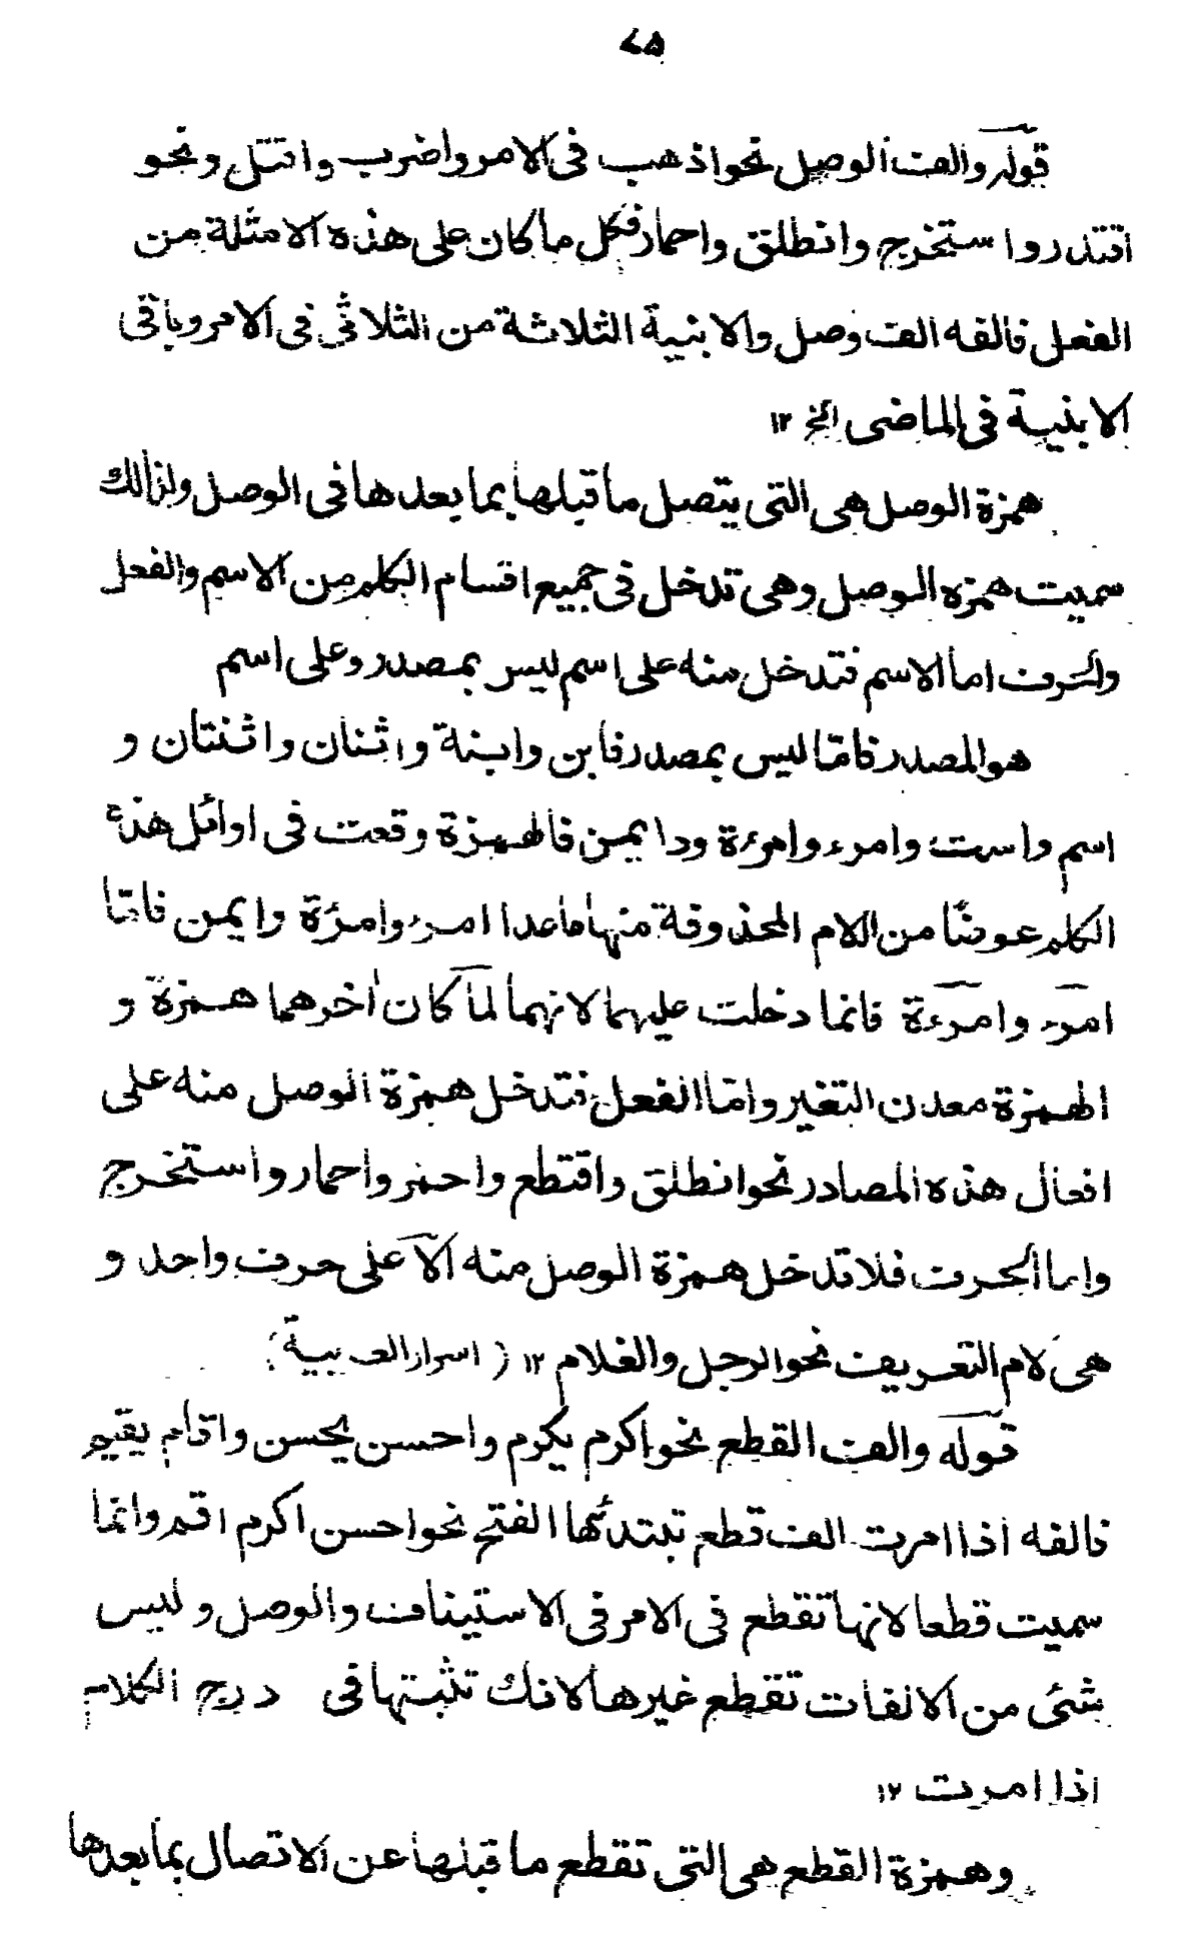 ٤٥
قوله والف الوصل نحو اذهب فى الامر واضرب واقتل ونحو
اقتدر واستخرج وانطلق واحمار فكل ما كان على هذه الامثلة من
الفعل فالفه الف وصل والابنية الثلاثة من الثلاثى فى الامر وباقى
الابنية فى الماضى الخ ١٢
همزة الوصل هى التى يتصل ما قبلها بما بعدها فى الوصل ولذالك
سميت همزه الوصل وهى تدخل فى جميع اقسام الكلم من الاسم والفعل
والحرف اما الاسم فتدخل منه على اسم ليس بمصدر وعلى اسم
هو المصدر فامّا ليس بمصدر فابن وابنة واثنان واثنتان و
اسم واست وامرء وامرءة وايمن فالهمزة وقعت فى اوائل هذه
الكلم عوضًا من اللام المحذوفة منها ماعدا امرء وامرؤة وايمن فامّا
امرء وامرءة فانما دخلت عليهما لانهما لما كان أخرهما همزة و
الهمزة معدن التغير وامّا الفعل فتدخل همزة الوصل منه على
افعال هذه المصادر نحو انطلق واقتطع واحمر واحمار واستخرج
واما الحرف فلا تدخل همزة الوصل منه الاّ على حرف واحد و
هى لام التعريف نحو الرجل والغلام ١٢ (اسرار العربية)
قوله والف القطع نحو اكرم يكرم واحسن يحسن واقام يقيم
فالفه اذا امرت الف قطع تبتدئها الفتح نحو احسن اكرم اقم وانما
سميت قطعا لانها تقطع فى الامر فى الاستيناف والوصل وليس
شئى من الالفات تقطع غيرها لانك تثبتها فى درج الكلام
اذا امرت ١٢
وهمزة القطع هى التى تقطع ما قبلها عن الاتصال بما بعدها